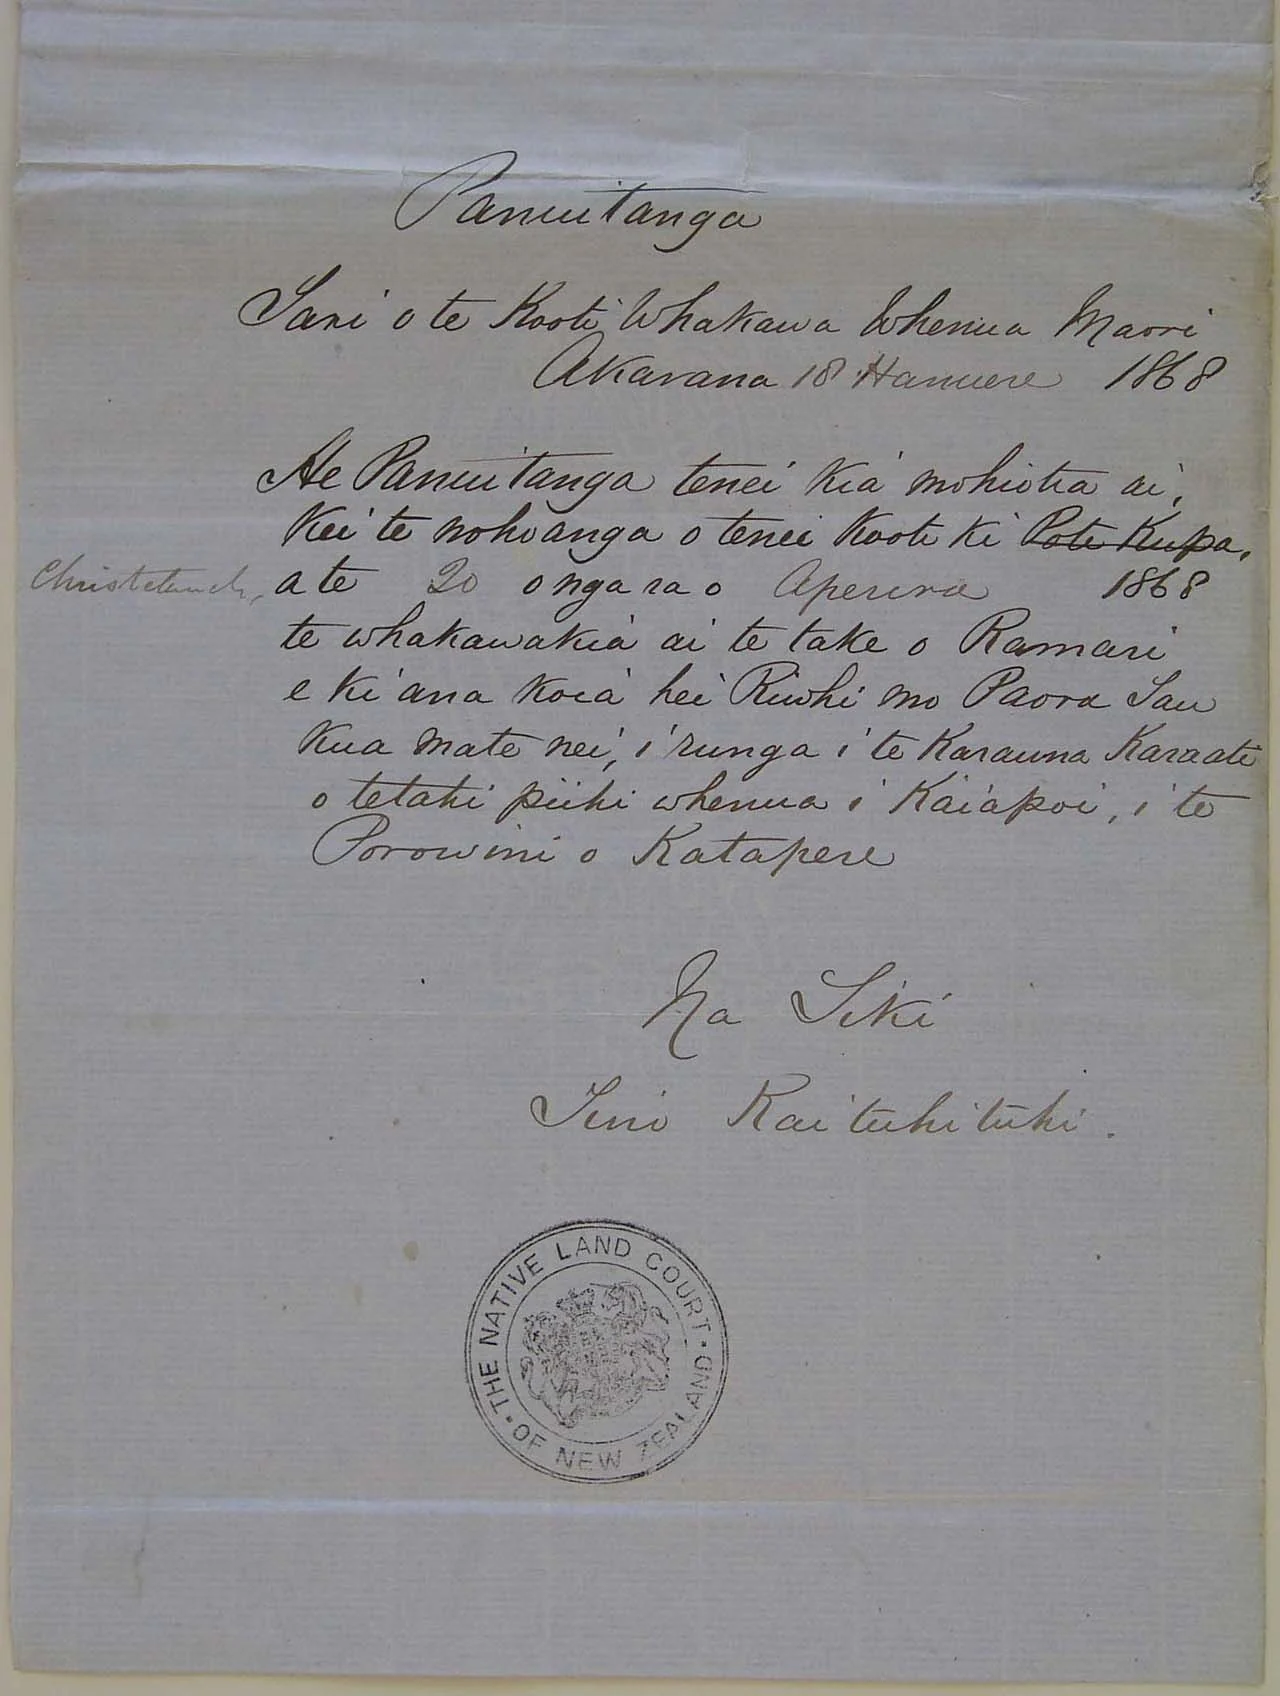 Panuitanga
Tari o te Kooti Whakawa Whenua Maori
Akarana 18 Hanuere 1868
He Panuitanga tenei kia mohiotia ai,
Kei te nohoanga o tenei Kooti ki Pote Kupa,
Christchurch, a te 20 o nga ra o Aperira 1868
te whakawakia ai te take o Ramari
e ki ana koia hei Riwhi mo Paora Tau
kua mate nei, i runga i te Karauna Karaati
o tetahi piihi whenua i Kaiapoi, i te
Porowini o Katapere
Na Tiki
Tino Kaituhituhi.
THE NATIVE LAND COURT
OF NEW ZEALAND